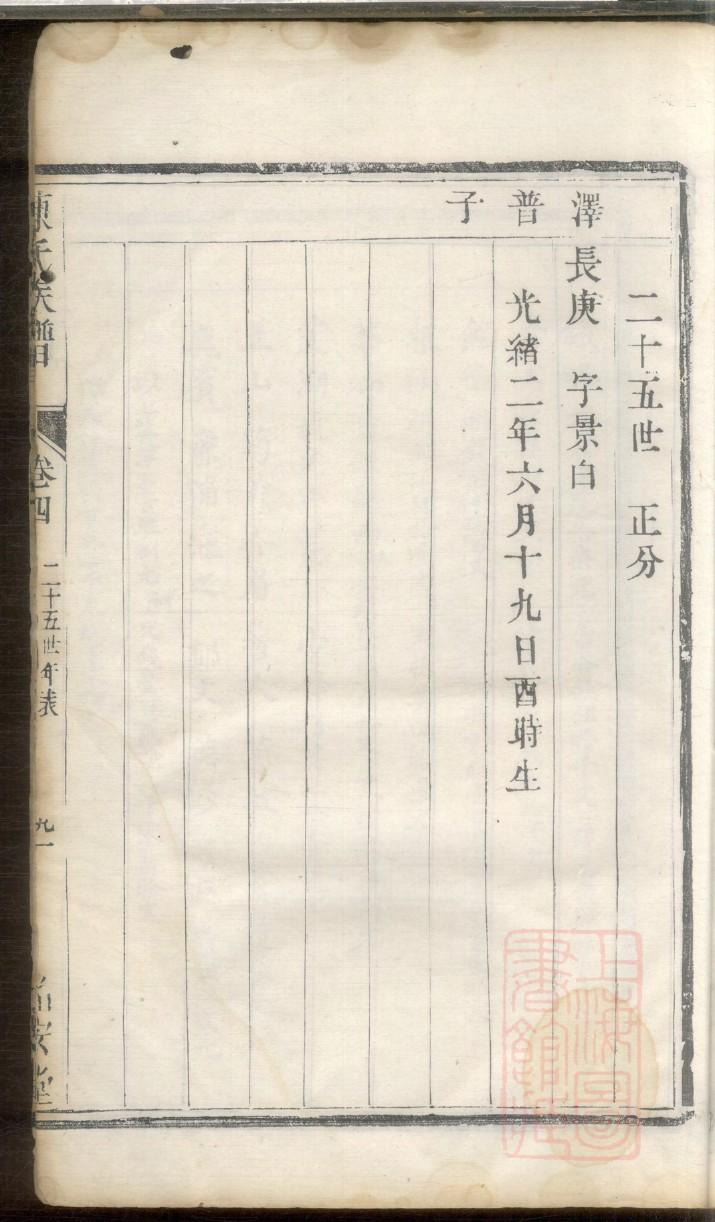 二十五世 正分
澤 長庚 字景白
普 光緒二年六月十九日酉時生
子
陳氏族譜 卷四 二十五世年表 九一
上海圖書館藏